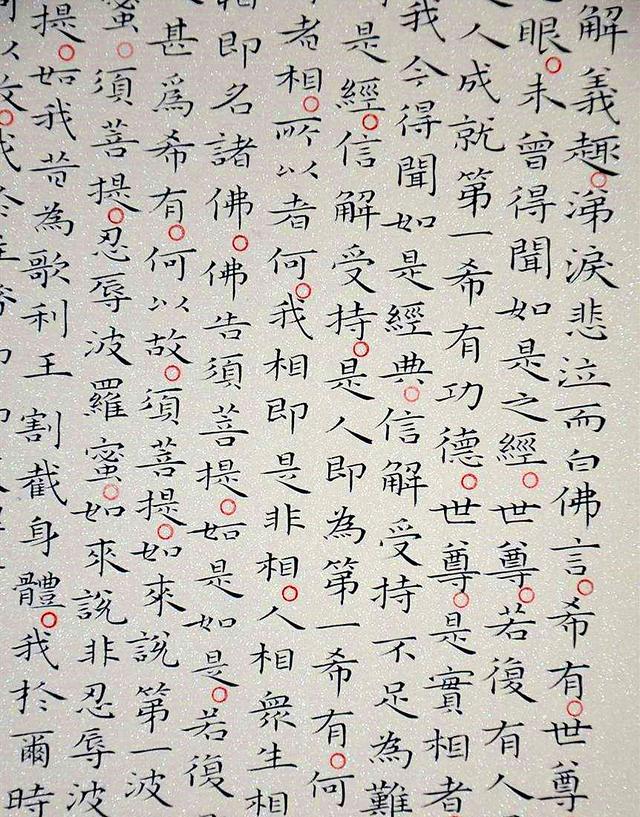 解義趣○涕淚悲泣而白佛言○希有○世尊
眼○未曾得聞如是之經○世尊○若復有人
人成就第一希有功德○世尊○是實相者
我今得聞如是經典○信解受持不足為難
是經○信解受持○是人即為第一希有○何
者相○所以者何○我相即是非相○人相眾生相
相即名諸佛○佛告須菩提○如是如是○若復
甚爲希有○何以故○須菩提○如來說第一波
蜜○須菩提○忍辱波羅蜜○如來說非忍辱波
提○如我昔為歌利王割截身體○我於爾時